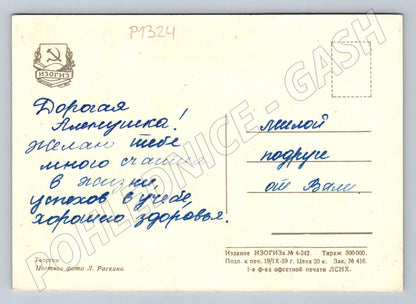 P1324
ИЗОГИЗ
Дорогая
Аленушка!
Желаю тебе
много счастья
в жизни,
успехов в учебе,
хорошего здоровья.
милой
подруге
от Вали.
Георгин
Цветное фото Л. Раскина
Издание ИЗОГИЗа № 4-242. Тираж 500 000.
Подп. к печ. 19/IX-59 г. Цена 20 к. Зак. № 416.
1-я ф-ка офсетной печати ЛСНХ.
POHLEDNICE - GASH